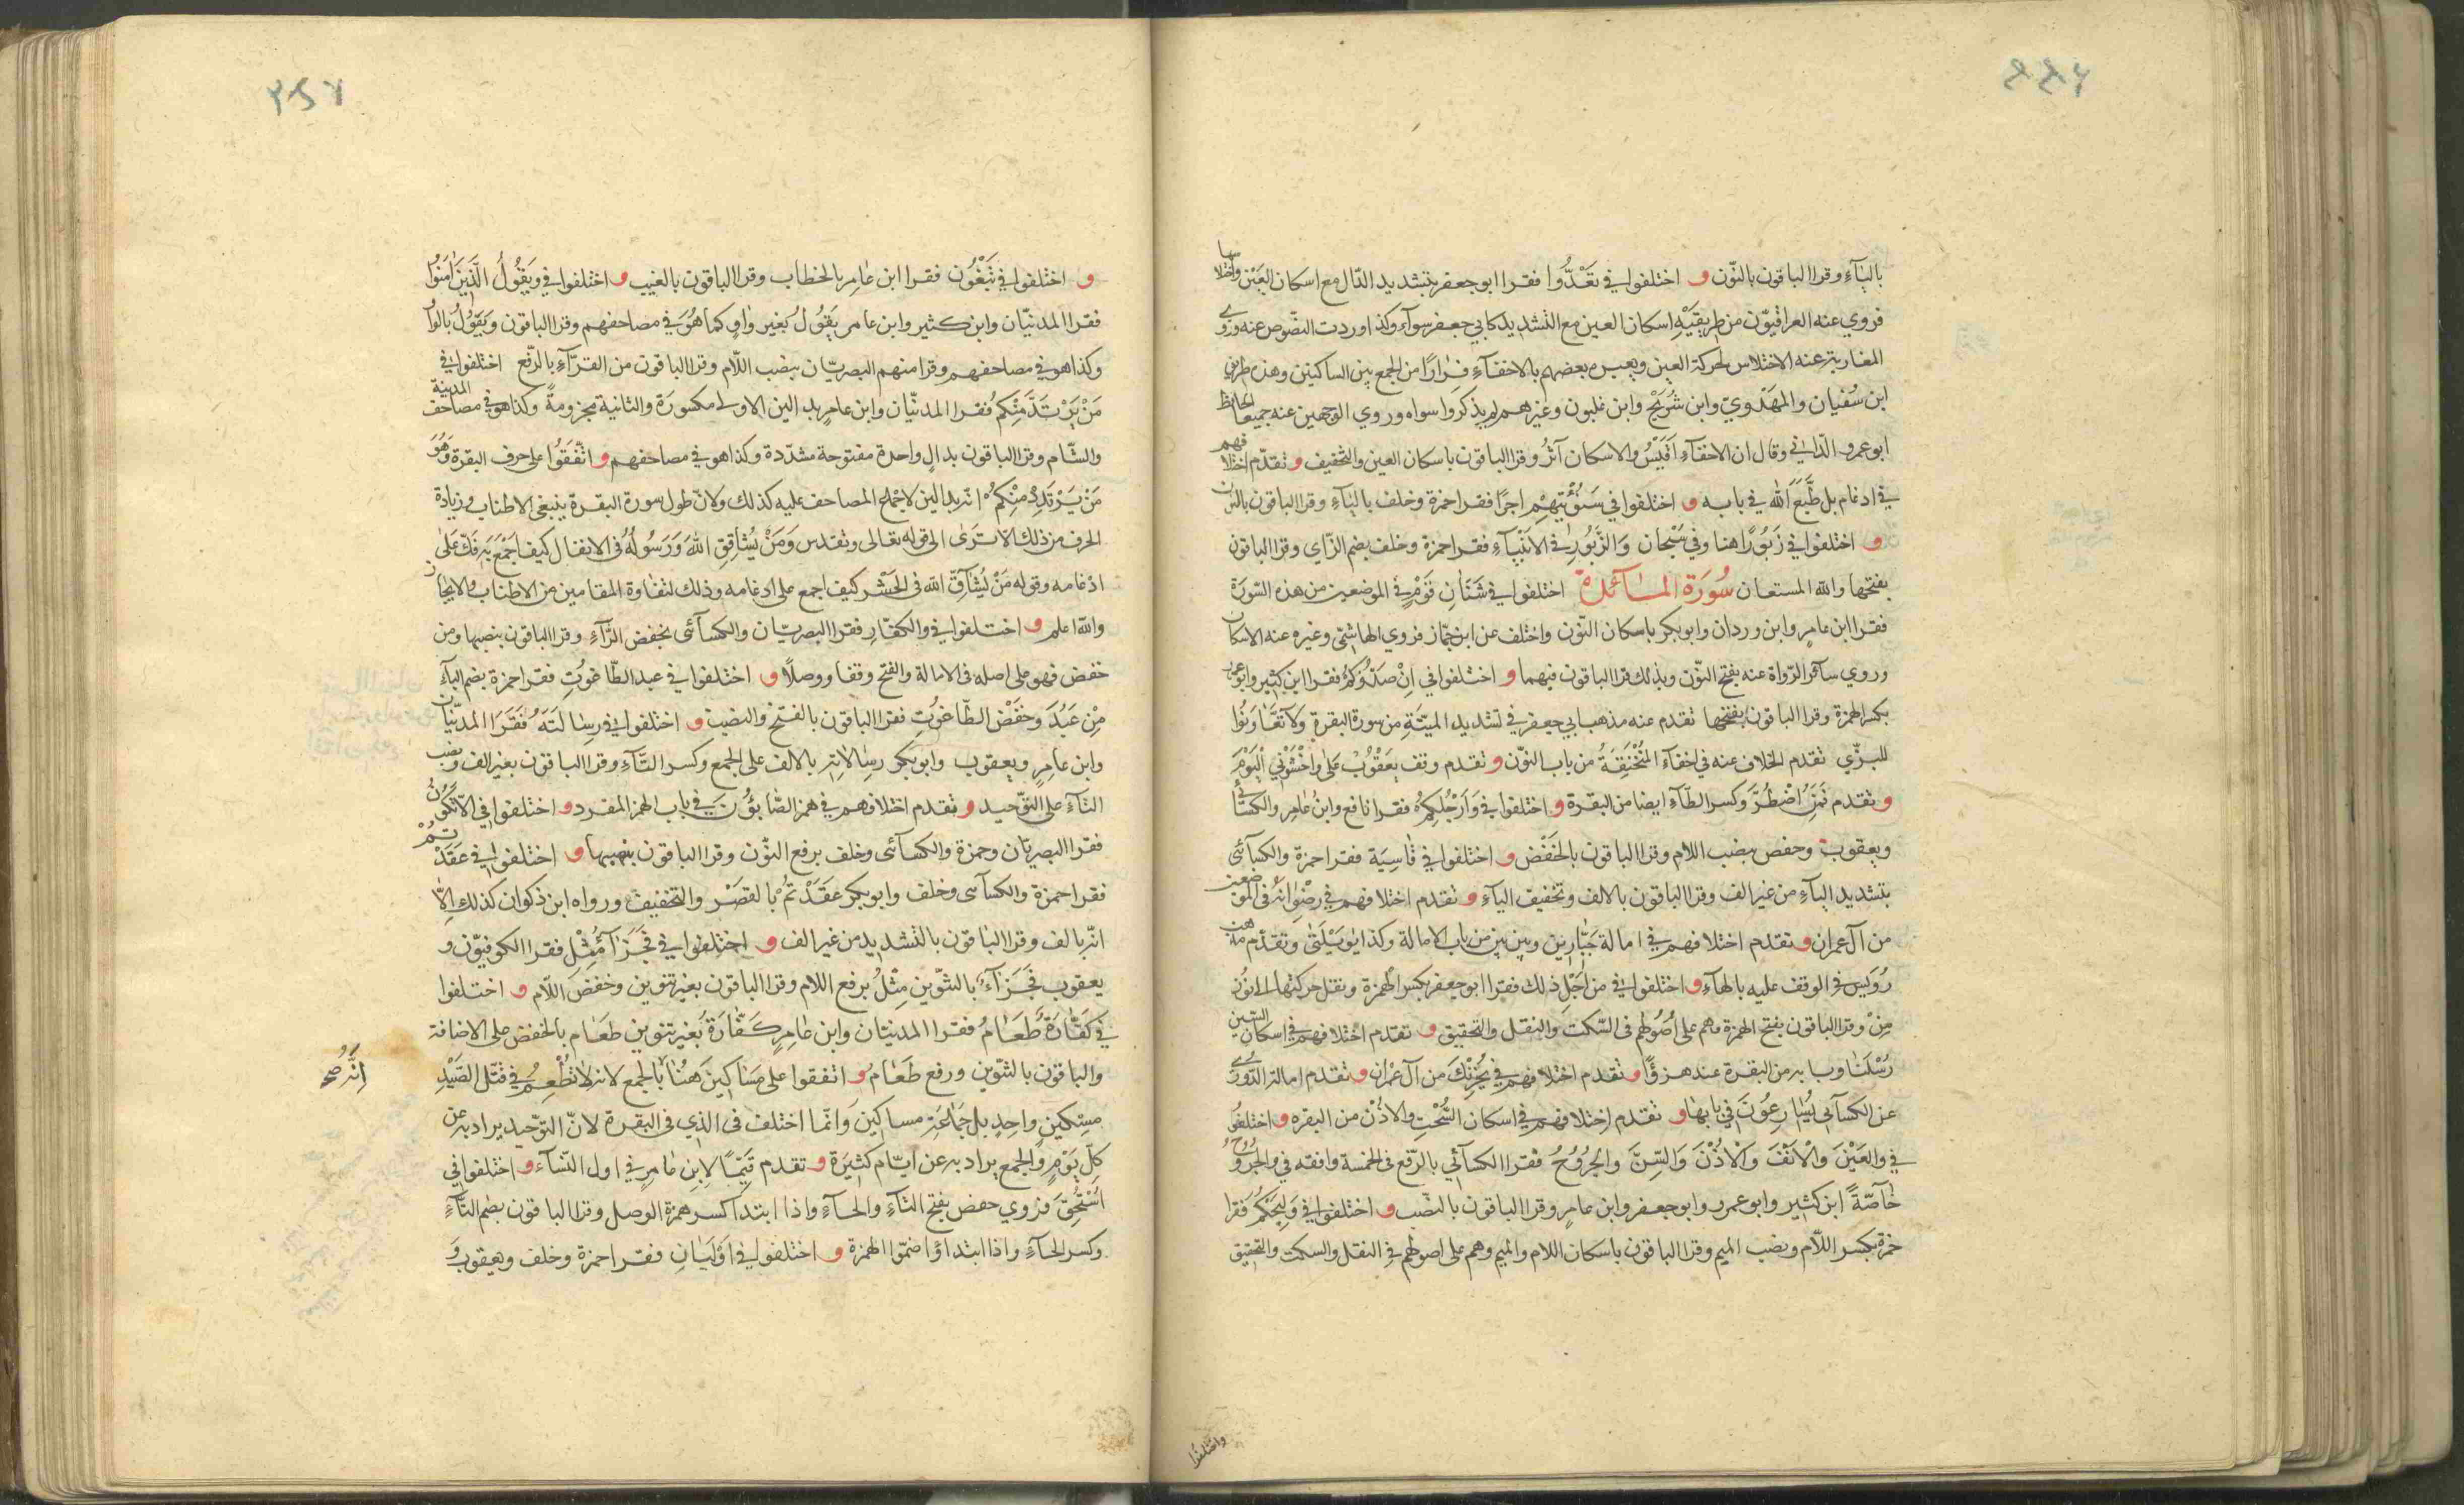 بالياء وقرا الباقون بالنون و اختلفوا في تعدوا فقرا ابو جعفر بتشديد الدال مع اسكان العين واختلفا
فروي عنه العراقيون من طريقيه اسكان العين مع التشديد كابي جعفر سوآء وكذا وردت النصوص عنه وروي
المغاربة عنه الاختلاس لحركة العين ويعبر بعضهم بالاخفآء فرارا من الجمع بين الساكنين وهذه طريق
ابن سفيان والمهدوي وابن شريح وابن غلبون وغيرهم لم يذكروا سواه وروي الوجهين عنه جميعا الحافظ
ابو عمرو الداني وقال ان الاخفآء اقيس والاسكان آثر وقرا الباقون باسكان العين والتخفيف و تقدم اختلافهم
في ادغام بل طبع الله في بابه و اختلفوا في سنؤتيهم اجرا فقرا حمزة وخلف باليآء وقرا الباقون بالنون
و اختلفوا في زبورا هنا وفي سبحان والزبور في الانبيآء فقرا حمزة وخلف بضم الزاي وقرا الباقون
بفتحها والله المستعان سورة المائدة اختلفوا في شنآن قوم في الموضعين من هذه السورة
فقرا ابن عامر وابن وردان وابو بكر باسكان النون واختلف عن ابن جماز فروي الهاشمي وغيره عنه الاسكان
وروي سآئر الرواة عنه بفتح النون وبذلك قرا الباقون فيهما و اختلفوا في ان صدوكم فقرا ابن كثير وابو عمرو
بكسر الهمزة وقرا الباقون بفتحها تقدم عنه مذهب ابي جعفر في تشديد الميتة من سورة البقرة ولا تعاونوا
للبزي تقدم الخلاف عنه في اخفآء المنخنقة من باب النون و تقدم وقف يعقوب على واخشوني اليوم
و تقدم فمن اضطر وكسر الطآء ايضا من البقرة و اختلفوا في وارجلكم فقرا نافع وابن عامر والكسائي
ويعقوب وحفص بنصب اللام وقرا الباقون بالخفض و اختلفوا في قاسية فقرا حمزة والكسآئي
بتشديد اليآء من غير الف وقرا الباقون بالالف وتخفيف اليآء و تقدم اختلافهم في رضوانه في الموضعين
من آل عمران و تقدم اختلافهم في امالة جبارين وبين بين من باب الامالة وكذا ياويلتى وتقدم مذهب
رويس في الوقف عليه بالهآء و اختلفوا في من اجل ذلك فقرا ابو جعفر بكسر الهمزة ونقل حركتها الى نون
من وقرا الباقون بفتح الهمزة وهم على اصولهم في السكت والنقل والتحقيق و تقدم اختلافهم في اسكان السين
رسلنا وبابه من البقرة عند هزوا و تقدم اختلافهم في يحزنك من آل عمران و تقدم امالة الدوري
عن الكسآئي يسارعون في بابها و تقدم اختلافهم في اسكان السحت والاذن من البقره و اختلفوا
في والعين والانف والاذن والسن والجروح فقرا الكسآئي بالرفع في الخمسة وافقه في والجروح
خآصة ابن كثير وابو عمرو وابو جعفر وابن عامر وقرا الباقون بالنصب و اختلفوا في وليحكم فقرا
حمزة بكسر اللام ونصب الميم وقرا الباقون باسكان اللام والميم وهم على اصولهم في النقل والسكت والتحقيق
واختلفوا
و اختلفوا في تبغون فقرا ابن عامر بالخطاب وقرا الباقون بالغيب و اختلفوا في ويقول الذين آمنوا
فقرا المدنيان وابن كثير وابن عامر يقول بغير واو كما هو في مصاحفهم وقرا الباقون ويقول بالواو
وكذا هو في مصاحفهم وقرا منهم البصريان بنصب اللام وقرا الباقون من القرآء بالرفع اختلفوا في
من يرتد منكم فقرا المدنيان وابن عامر بدالين الاولى مكسورة والثانية مجزومة وكذا هو في مصاحف المدينة
والشام وقرا الباقون بدال واحدة مفتوحة مشددة وكذا هو في مصاحفهم و اتفقوا على حرف البقرة وهو
من يرتدد منكم انه بدالين لاجماع المصاحف عليه كذلك ولان طول سورة البقرة ينبغي الاطناب وزيادة
الحرف من ذلك الا ترى الى قوله تعالى وتقدس ومن يشاقق الله ورسوله في الانفال كيف اجمع بترفك على
ادغامه وقوله من يشآق الله في الحشر كيف اجمع على ادغامه وذلك لتفاوة المقامين من الاطناب والايجاز
والله اعلم و اختلفوا في والكفار فقرا البصريان والكسآئي بخفض الرآء وقرا الباقون بنصبها ومن
خفض فهو على اصله في الامالة والفتح وقفا ووصلا و اختلفوا في عبد الطاغوت فقرا حمزة بضم البآء
من عبد وخفض الطاغوت فقرا الباقون بالفتح والنصب و اختلفوا في رسالته فقرا المدنيان
وابن عامر ويعقوب وابو بكر رسالاته بالالف على الجمع وكسر التآء وقرا الباقون بغير الف ونصب
التآء على التوحيد و تقدم اختلافهم في همز الصابؤن في باب الهمز المفرد و اختلفوا في الا تكون
فقرا البصريان وحمزة والكسآئي وخلف برفع النون وقرا الباقون بنصبها و اختلفوا في عقدتم
فقرا حمزة والكسآئي وخلف وابو بكر عقدتم بالقصر والتخفيف ورواه ابن ذكوان كذلك الا
انه بالف وقرا الباقون بالتشديد من غير الف و اختلفوا في فجزآء مثل فقرا الكوفيون و
يعقوب فجزآء بالتنوين مثل برفع اللام وقرا الباقون بغير تنوين وخفض اللام و اختلفوا
في كفارة طعام فقرا المدنيان وابن عامر كفارة بغير تنوين طعام بالخفض على الاضافة
والباقون بالتنوين ورفع طعام و اتفقوا على مساكين هنا بالجمع لانه لا تطعم في قتل الصيد
مسكين واحد بل جماعة مساكين وانما اختلف في الذي في البقرة لان التوحيد يراد به عن
كل يوم والجمع يراد به عن ايام كثيرة و تقدم قيما لابن عامر في اول النسآء و اختلفوا في
استحق فروي حفص بفتح التآء والحآء واذا ابتدا كسر همزة الوصل وقرا الباقون بضم التآء
وكسر الحآء واذا ابتدآؤا ضموا الهمزة و اختلفوا في اوليان فقرا حمزة وخلف ويعقوب و